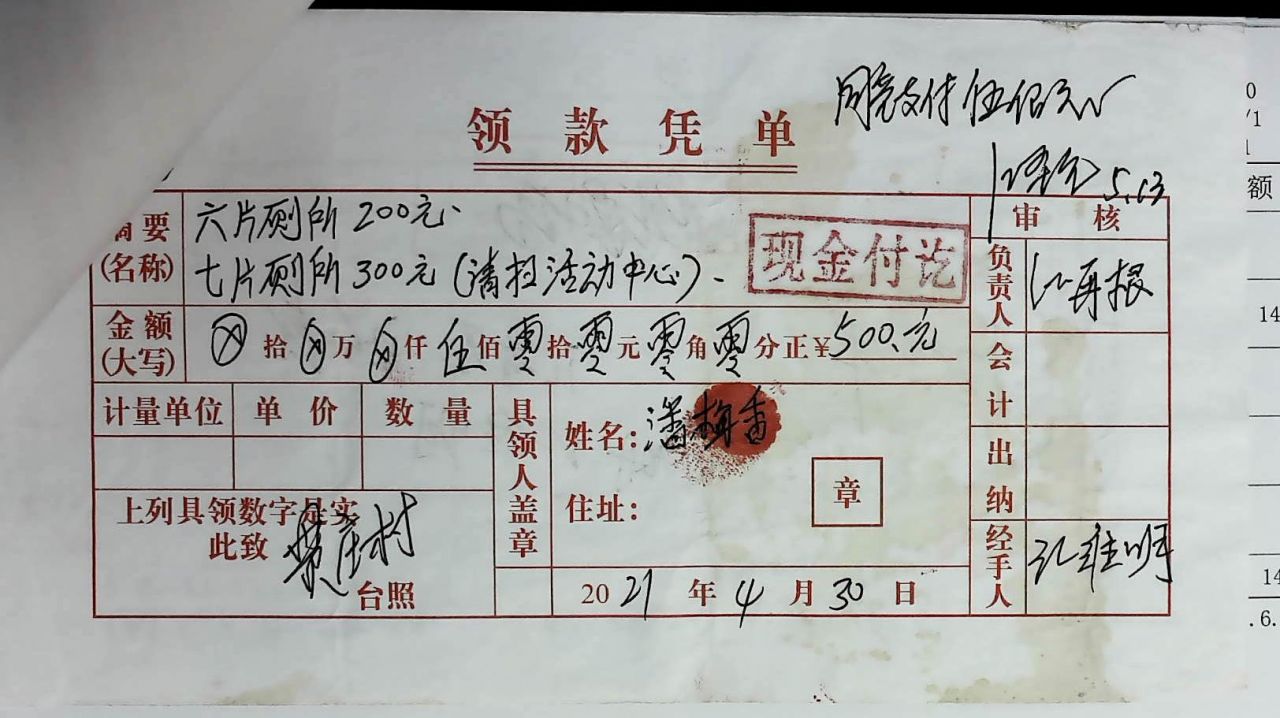 领款凭单
同意支付伍佰元
5.13
摘要(名称)
六片厕所200元、
七片厕所300元(清扫活动中心)、
现金付讫
金额(大写)
⊗拾⊗万⊗仟伍佰零拾零元零角零分正¥500.元
计量单位 单价 数量
上列具领数字是实
此致
村
台照
具领人盖章
姓名:潘梅香
住址:
章
2021年4月30日
审核
负责人
会计
出纳
经手人
0
/1
1
额
14
14
.6.